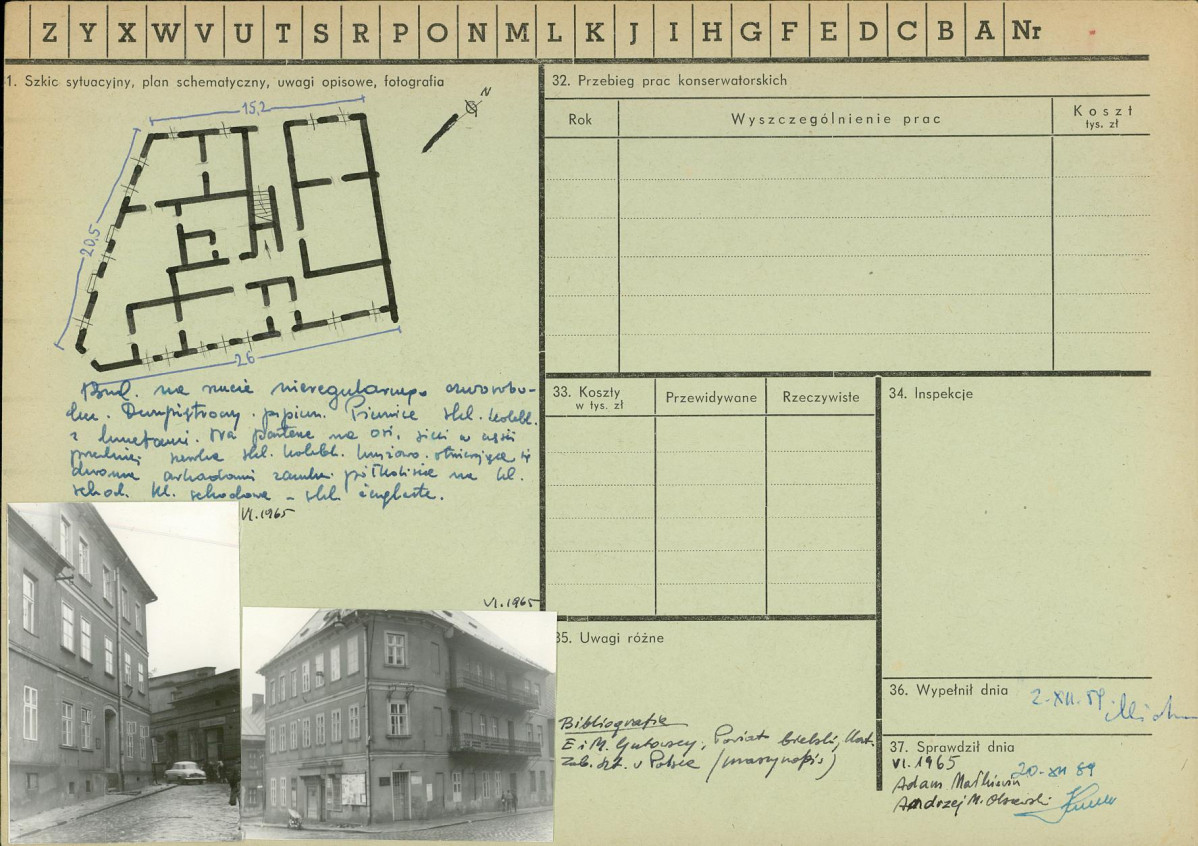 Z Y X W V U T S R P O N M L K J I H G F E D C B A Nr
1. Szkic sytuacyjny, plan schematyczny, uwagi opisowe, fotografia
N
15,2
20,5
26
Bud. na rzucie nieregularnego czworobo-
ku. Dwupiętrowy, podpiwn. Piwnice skl. kolebk.
z lunetami. Na parterze na osi, sień w części
przedniej szeroka skl. kolebk. krzyżowo, otwierająca się
dwoma arkadami zamkn. półkoliście na kl.
schod. Kl. schodowa – skl. żaglaste.
VI.1965
VI.1965
32. Przebieg prac konserwatorskich
Rok
Wyszczególnienie prac
Koszt
tys. zł
33. Koszty
w tys. zł
Przewidywane
Rzeczywiste
34. Inspekcje
35. Uwagi różne
Bibliografia
E i M. Gutowscy, Powiat bielski, Kat.
Zab. Szt. w Polsce (maszynopis)
36. Wypełnił dnia
2.XII.59.
37. Sprawdził dnia
VI.1965
20-XII 89
Adam Małkiewicz
Andrzej M. Olszewski